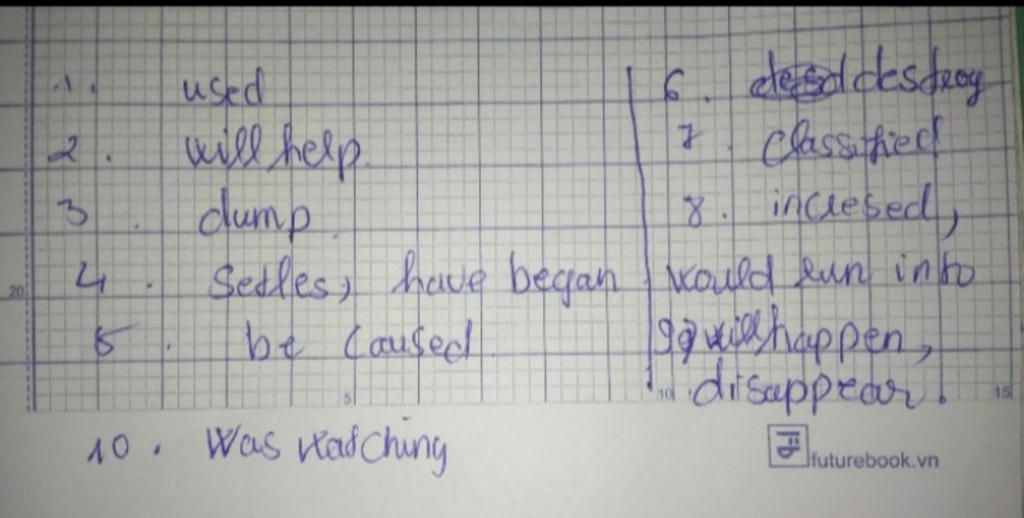 1. used
2. will help.
3. dump.
4. Settles, have began
5. be caused
6. destroy
7. classified
8. incresed,
would run into
9, will happen,
disappear.
10. Was watching
20
5
10
15
futurebook.vn